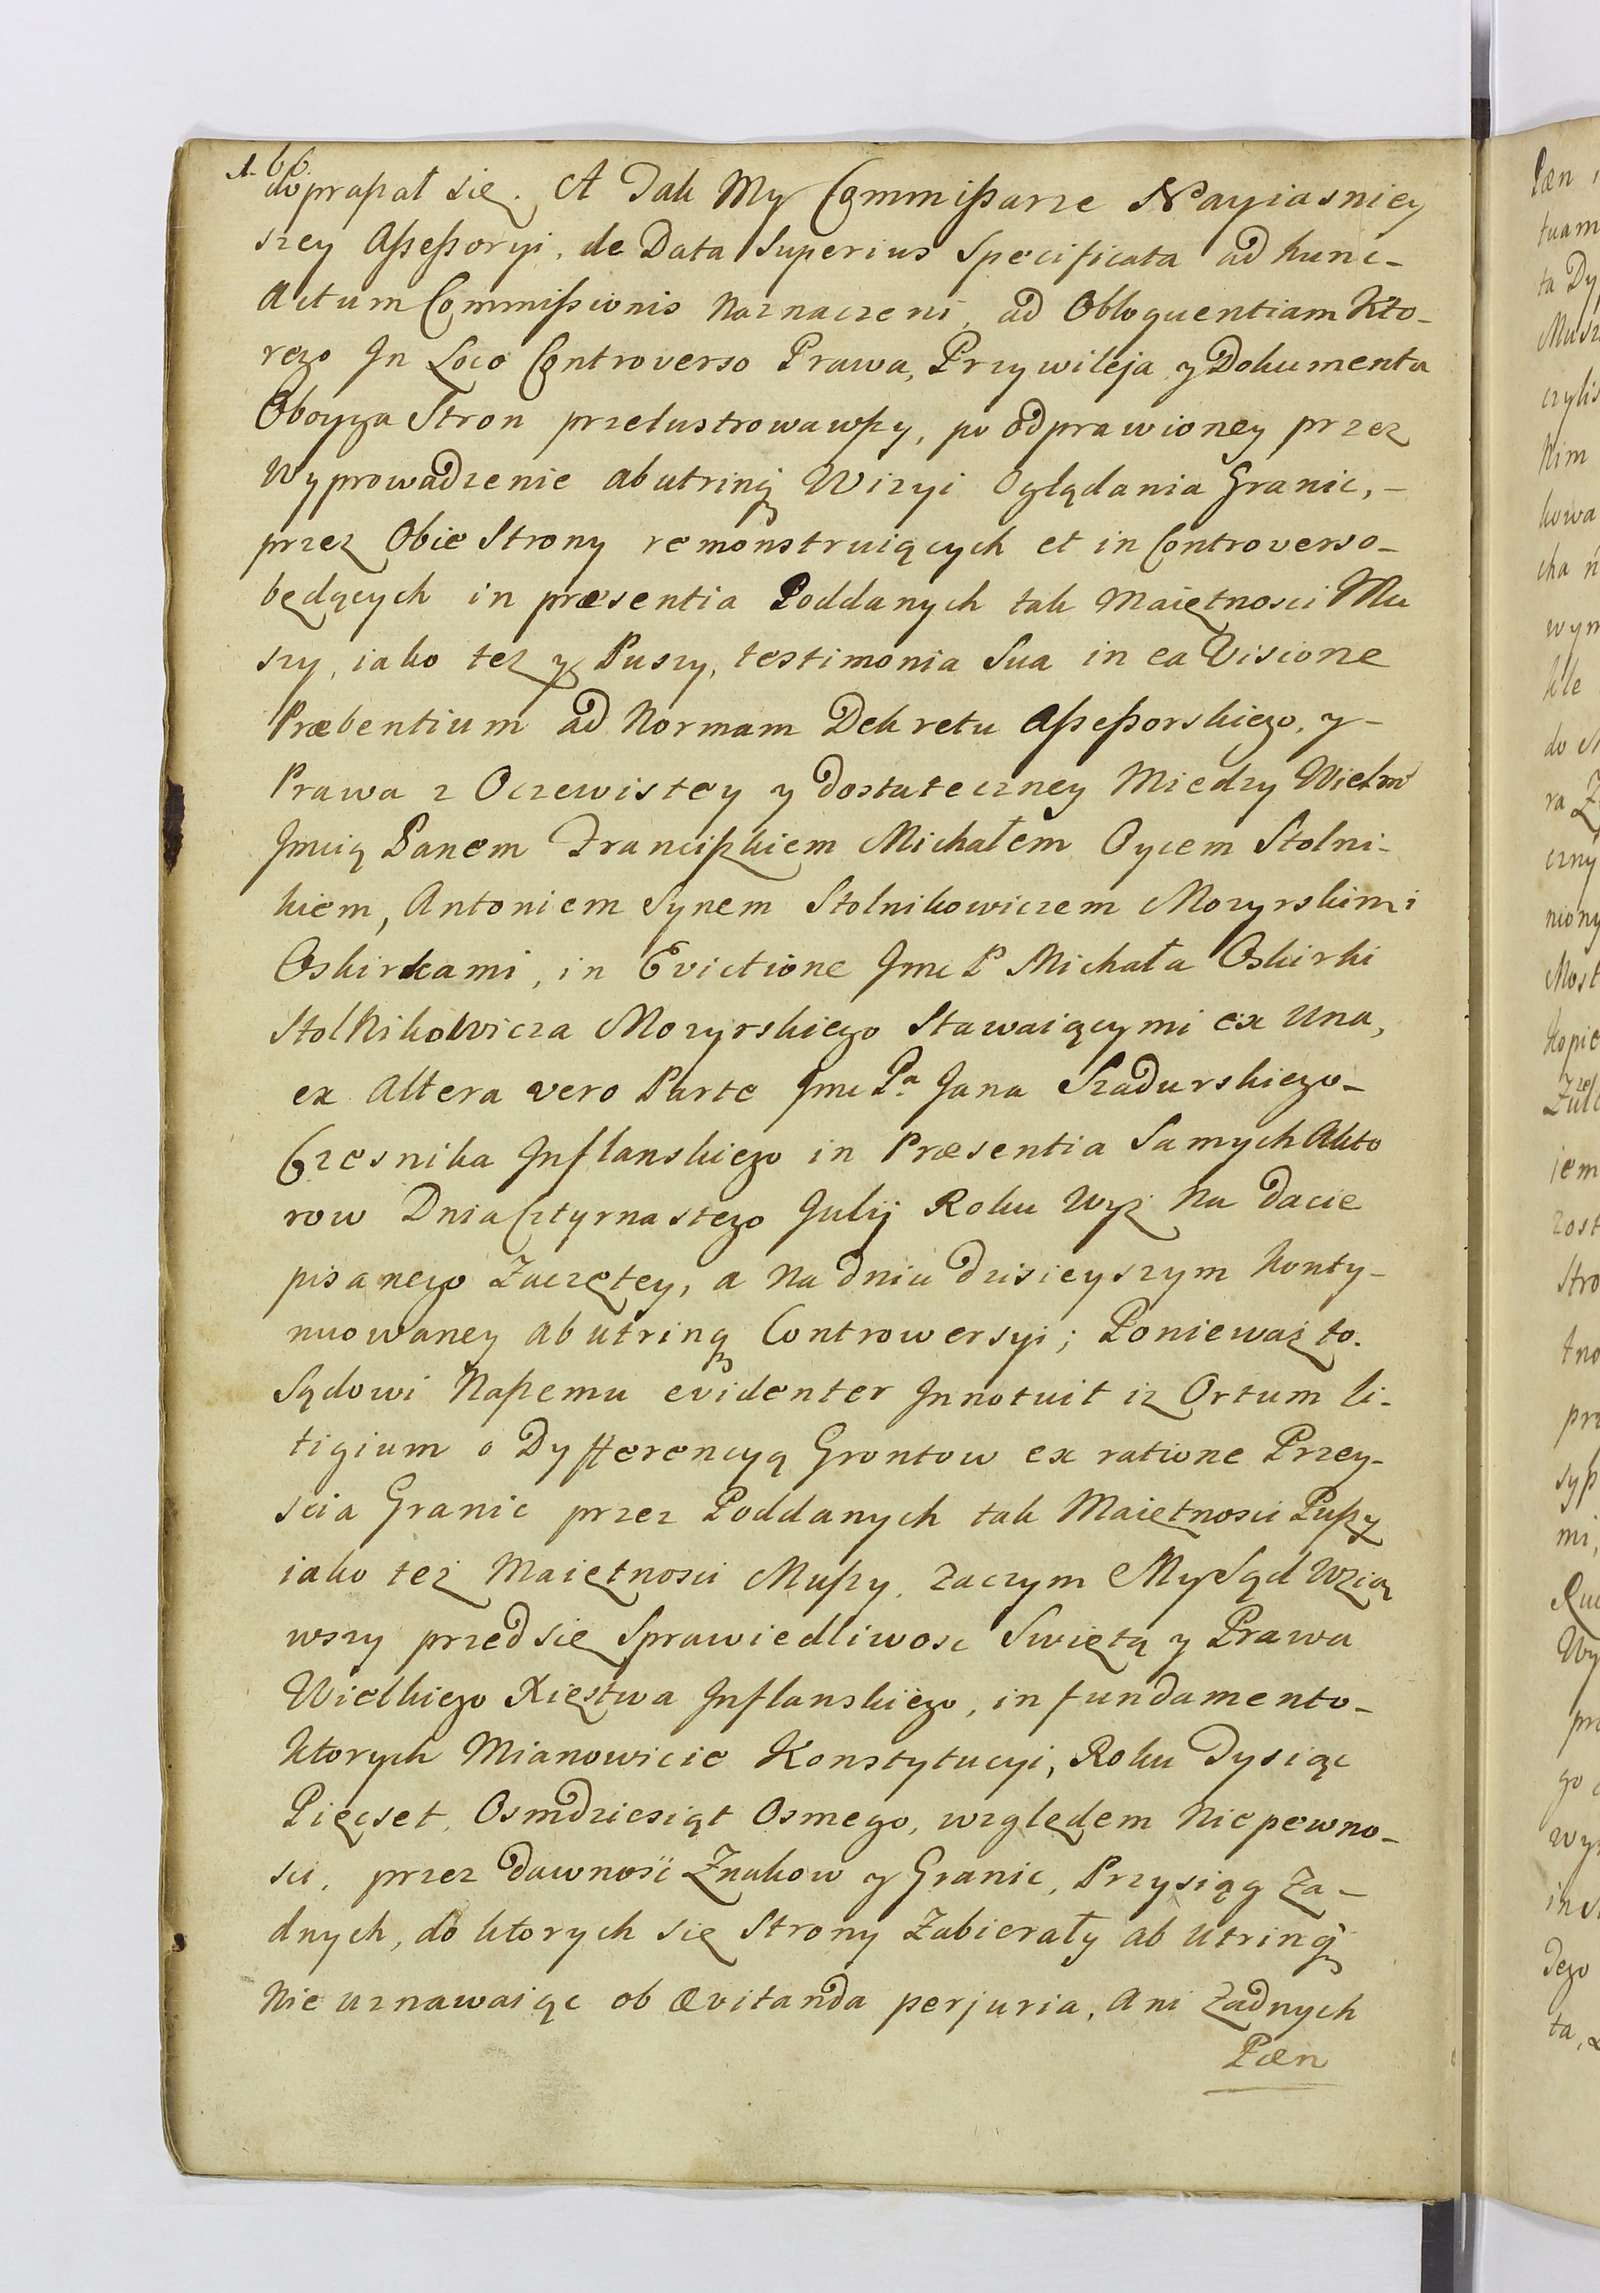 166.
dopraszał się. A Tak My Commissarze Nayiasniey
szey Assessoryi, de Data Superius Specificata ad hunc-
Actum Commissionis Naznaczeni, ad Obloquentiam Kto-
rego In Loco Controverso Prawa, Przywileja y Dokumenta
Oboyga Stron przelustrowawszy, po odprawioney przez
Wyprowadzenie abutrinq Wizyi Oglądania Granic,-
przez Obie Strony remonstruiących et in Controverso-
będących in præsentia Poddanych tak Maiętnosci Mu
szy, iako tez y Puszy, testimonia Sua in ea Visione
Præbentium ad Normam Dekretu Assessorskiego, y-
Prawa z Oczewistey y dostateczney Miedzy Wielm
Jmcią Panem Franciszkiem Michałem Oycem Stolni-
kiem, Antoniem Synem Stolnikowiczem Mozyrskimi
Oskirkami, in Evictione Jmc P Michała Oskirki
Stolnikowicza Mozyrskiego Stawaiącymi ex Una,
ex Altera vero Parte Jmc Pa Jana Szadurskiego-
Czesnika Inflanskiego in Præsentia Samych Akto
row Dnia Cztyrnastego Julij Roku Wyż Na dacie
pisanego Zaczętey, a Na dniu dzisieyszym Konty-
nuowaney ab utrinq Controwersyi; Ponieważ to.
Sądowi Naszemu evidenter Innotuit iż Ortum li-
tigium o Dyfferencyą Grontow ex ratione Przey-
scia Granic przez Poddanych tak Maiętnosci Puszy
iako tez Maiętnosci Muszy, zaczym My Sąd Wzią
wszy przed się Sprawiedliwosc Swiętą y Prawa
Wielkiego Xięstwa Inflanskiego, in fundamento-
Ktorych Mianowicie Konstytucyi, Roku Tysiąc
Pięcset, Osmdziesiąt Osmego, względem Niepewno-
sci, przez dawność Znakow y Granic, Przysiąg Ża-
dnych, do ktorych się Strony Zabierały ab utrinq
Nie uznawaiąc ob ævitanda perjuria, Ani żadnych
Pæn